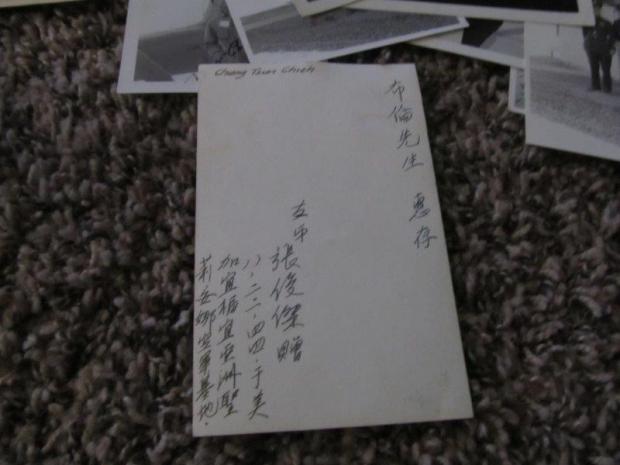 Chang Tsun Chieh
布倫先生 惠存
友弟張俊傑贈
八·二二·四四·于美
加宜福宜亞洲聖
莉安娜空軍基地·